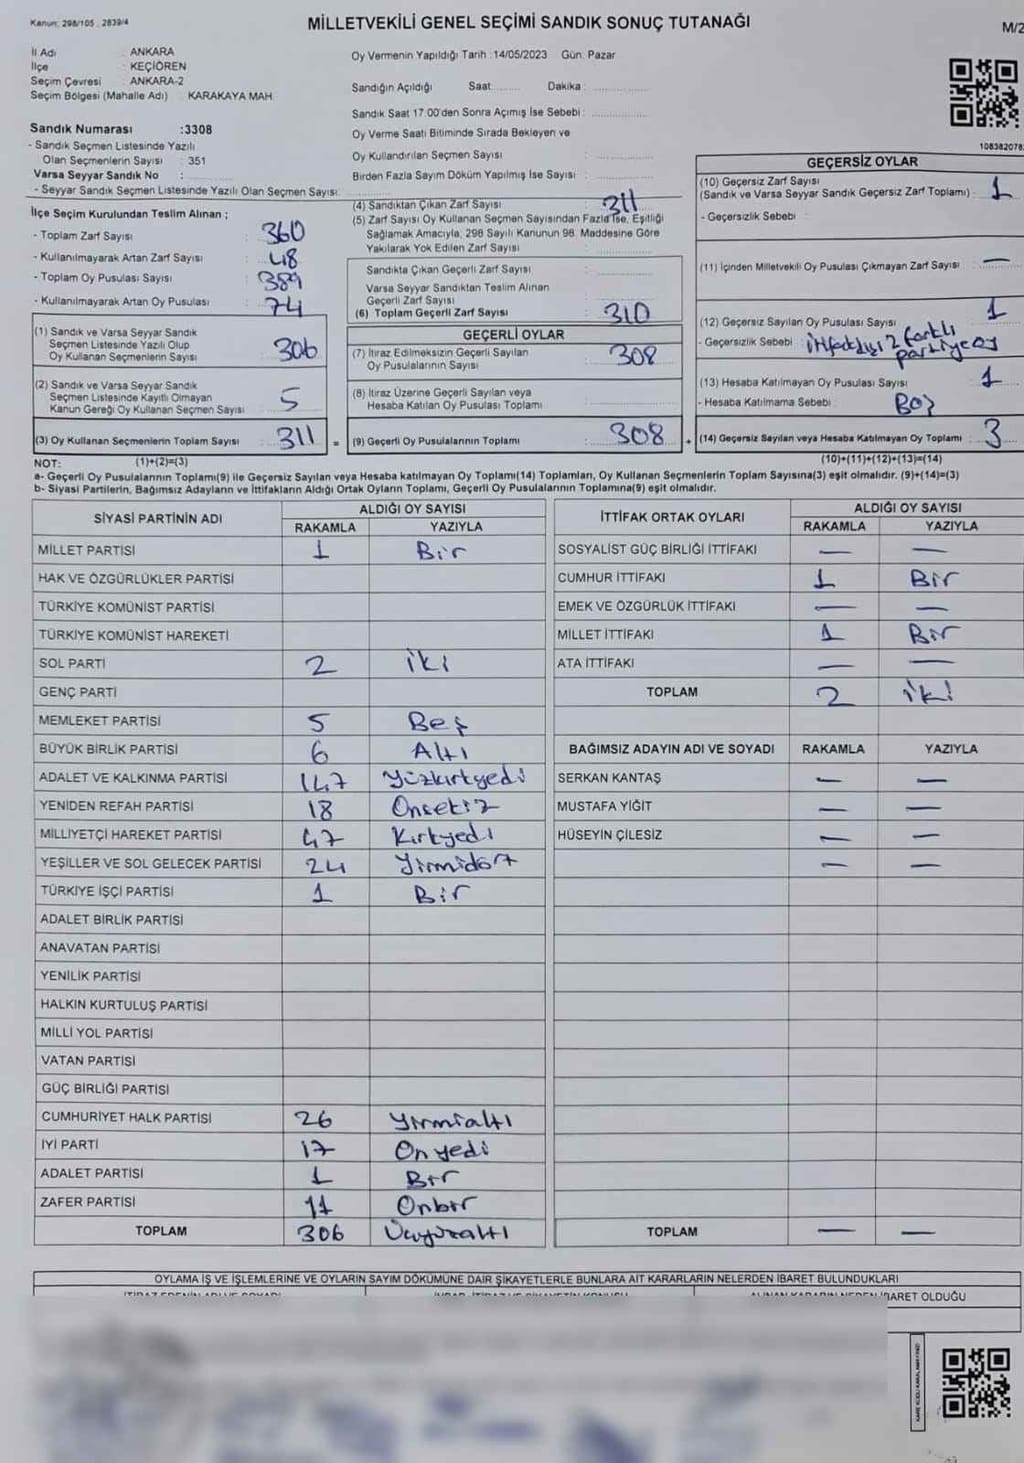 Kanun: 298/105 , 2839/4
MİLLETVEKİLİ GENEL SEÇİMİ SANDIK SONUÇ TUTANAĞI
M/2
İl Adı : ANKARA
İlçe : KEÇİÖREN
Seçim Çevresi : ANKARA-2
Seçim Bölgesi (Mahalle Adı) : KARAKAYA MAH.
Sandık Numarası :3308
- Sandık Seçmen Listesinde Yazılı
Olan Seçmenlerin Sayısı : 351
Varsa Seyyar Sandık No :
- Seyyar Sandık Seçmen Listesinde Yazılı Olan Seçmen Sayısı:
Oy Vermenin Yapıldığı Tarih :14/05/2023 Gün: Pazar
Sandığın Açıldığı Saat: Dakika :
Sandık Saat 17:00'den Sonra Açımış İse Sebebi :
Oy Verme Saati Bitiminde Sırada Bekleyen ve
Oy Kullandırılan Seçmen Sayısı :
Birden Fazla Sayım Döküm Yapılmış İse Sayısı :
108382078
İlçe Seçim Kurulundan Teslim Alınan ;
- Toplam Zarf Sayısı : 360
- Kullanılmayarak Artan Zarf Sayısı : 48
- Toplam Oy Pusulası Sayısı : 389
- Kullanılmayarak Artan Oy Pusulası : 74
(1) Sandık ve Varsa Seyyar Sandık
Seçmen Listesinde Yazılı Olup
Oy Kullanan Seçmenlerin Sayısı : 306
(2) Sandık ve Varsa Seyyar Sandık
Seçmen Listesinde Kayıtlı Olmayan
Kanun Gereği Oy Kullanan Seçmen Sayısı : 5
(3) Oy Kullanan Seçmenlerin Toplam Sayısı : 311 =
(4) Sandıktan Çıkan Zarf Sayısı : 311
(5) Zarf Sayısı Oy Kullanan Seçmen Sayısından Fazla İse, Eşitliği
Sağlamak Amacıyla, 298 Sayılı Kanunun 98. Maddesine Göre
Yakılarak Yok Edilen Zarf Sayısı :
Sandıkta Çıkan Geçerli Zarf Sayısı :
Varsa Seyyar Sandıktan Teslim Alınan
Geçerli Zarf Sayısı :
(6) Toplam Geçerli Zarf Sayısı : 310
GEÇERLİ OYLAR
(7) İtiraz Edilmeksizin Geçerli Sayılan
Oy Pusulalarının Sayısı : 308
(8) İtiraz Üzerine Geçerli Sayılan veya
Hesaba Katılan Oy Pusulası Toplamı :
(9) Geçerli Oy Pusulalarının Toplamı : 308 +
GEÇERSİZ OYLAR
(10) Geçersiz Zarf Sayısı
(Sandık ve Varsa Seyyar Sandık Geçersiz Zarf Toplamı) : 1
- Geçersizlik Sebebi :
(11) İçinden Milletvekili Oy Pusulası Çıkmayan Zarf Sayısı : —
(12) Geçersiz Sayılan Oy Pusulası Sayısı : 1
- Geçersizlik Sebebi : ittifakdışı 2 farklı
partiye oy
(13) Hesaba Katılmayan Oy Pusulası Sayısı : 1
- Hesaba Katılmama Sebebi : Boş
(14) Geçersiz Sayılan veya Hesaba Katılmayan Oy Toplamı : 3
NOT: (1)+(2)=(3) (10)+(11)+(12)+(13)=(14)
a- Geçerli Oy Pusulalarının Toplamı(9) ile Geçersiz Sayılan veya Hesaba katılmayan Oy Toplamı(14) Toplamları, Oy Kullanan Seçmenlerin Toplam Sayısına(3) eşit olmalıdır. (9)+(14)=(3)
b- Siyasi Partilerin, Bağımsız Adayların ve İttifakların Aldığı Ortak Oyların Toplamı, Geçerli Oy Pusulalarının Toplamına(9) eşit olmalıdır.
SİYASİ PARTİNİN ADI ALDIĞI OY SAYISI
RAKAMLA YAZIYLA
MİLLET PARTİSİ 1 Bir
HAK VE ÖZGÜRLÜKLER PARTİSİ
TÜRKİYE KOMÜNİST PARTİSİ
TÜRKİYE KOMÜNİST HAREKETİ
SOL PARTİ 2 iki
GENÇ PARTİ
MEMLEKET PARTİSİ 5 Beş
BÜYÜK BİRLİK PARTİSİ 6 Altı
ADALET VE KALKINMA PARTİSİ 147 Yüzkırkyedi
YENİDEN REFAH PARTİSİ 18 Onsekiz
MİLLİYETÇİ HAREKET PARTİSİ 47 Kırkyedi
YEŞİLLER VE SOL GELECEK PARTİSİ 24 Yirmidört
TÜRKİYE İŞÇİ PARTİSİ 1 Bir
ADALET BİRLİK PARTİSİ
ANAVATAN PARTİSİ
YENİLİK PARTİSİ
HALKIN KURTULUŞ PARTİSİ
MİLLİ YOL PARTİSİ
VATAN PARTİSİ
GÜÇ BİRLİĞİ PARTİSİ
CUMHURİYET HALK PARTİSİ 26 Yirmialtı
İYİ PARTİ 17 Onyedi
ADALET PARTİSİ 1 Bir
ZAFER PARTİSİ 11 Onbir
TOPLAM 306 Üçyüzaltı
İTTİFAK ORTAK OYLARI ALDIĞI OY SAYISI
RAKAMLA YAZIYLA
SOSYALİST GÜÇ BİRLİĞİ İTTİFAKI — —
CUMHUR İTTİFAKI 1 Bir
EMEK VE ÖZGÜRLÜK İTTİFAKI — —
MİLLET İTTİFAKI 1 Bir
ATA İTTİFAKI — —
TOPLAM 2 iki
BAĞIMSIZ ADAYIN ADI VE SOYADI RAKAMLA YAZIYLA
SERKAN KANTAŞ — —
MUSTAFA YİĞİT — —
HÜSEYİN ÇİLESİZ — —
— —
TOPLAM — —
OYLAMA İŞ VE İŞLEMLERİNE VE OYLARIN SAYIM DÖKÜMÜNE DAİR ŞİKAYETLERLE BUNLARA AİT KARARLARIN NELERDEN İBARET BULUNDUKLARI
OLDUĞU